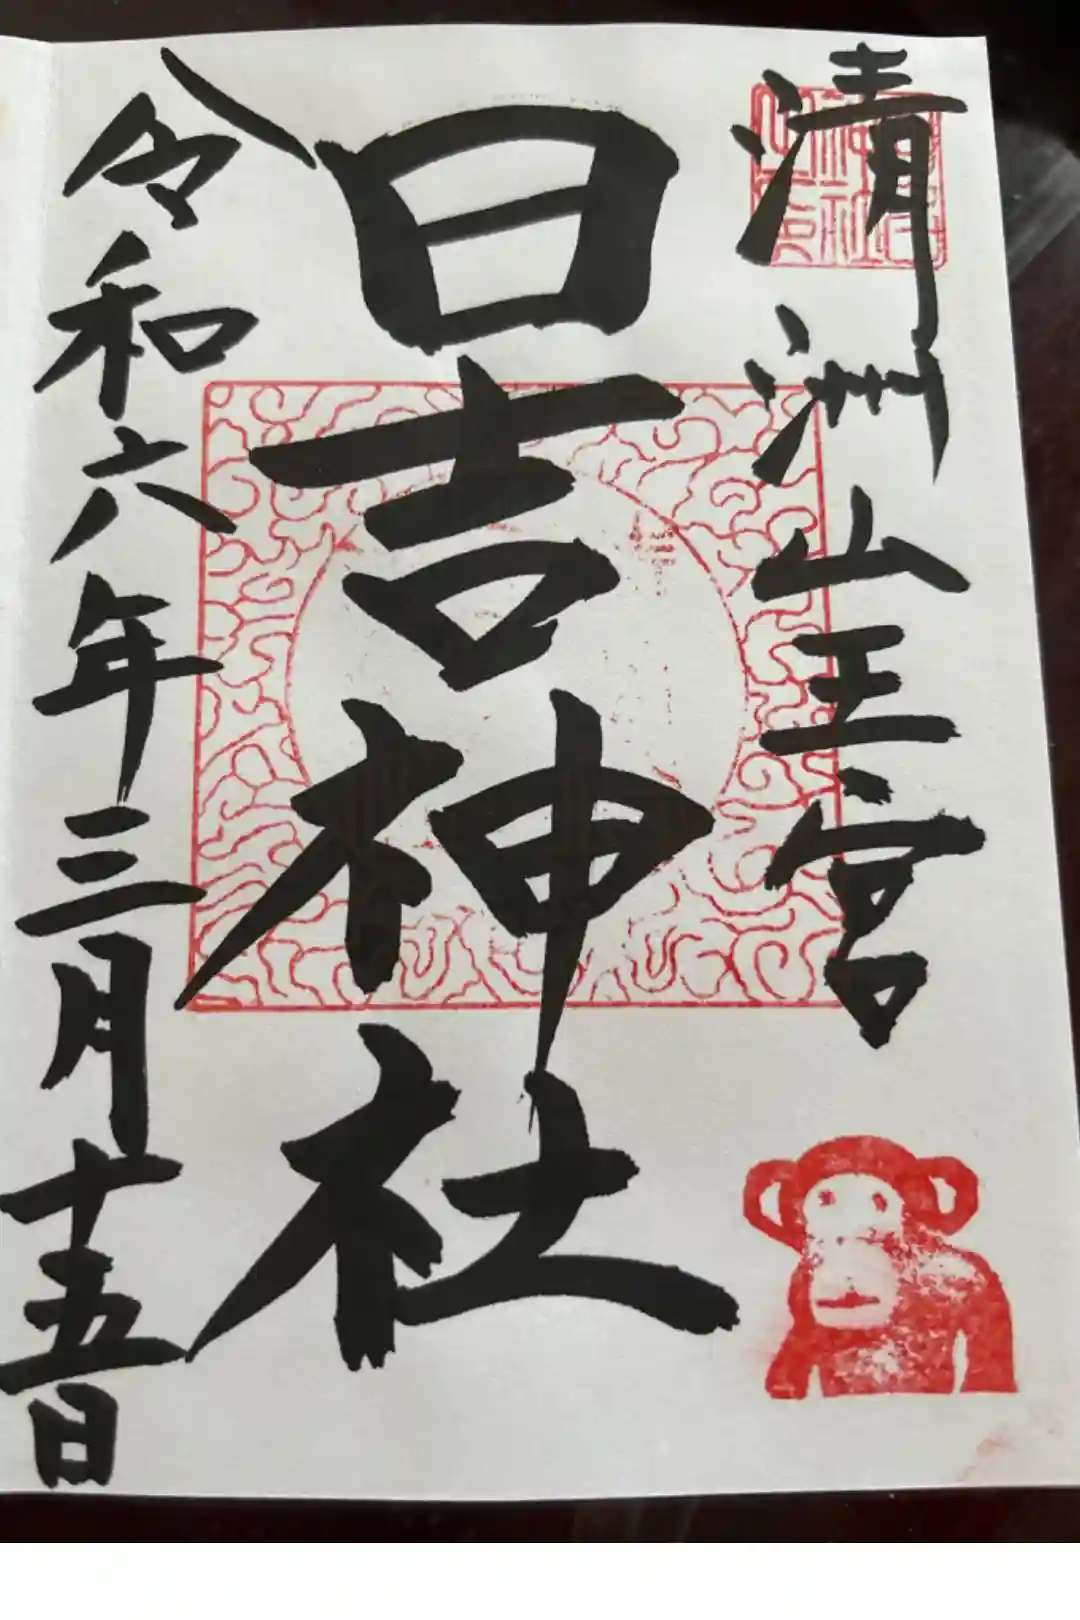 清洲山王宮
日吉神社
令和六年三月十五日